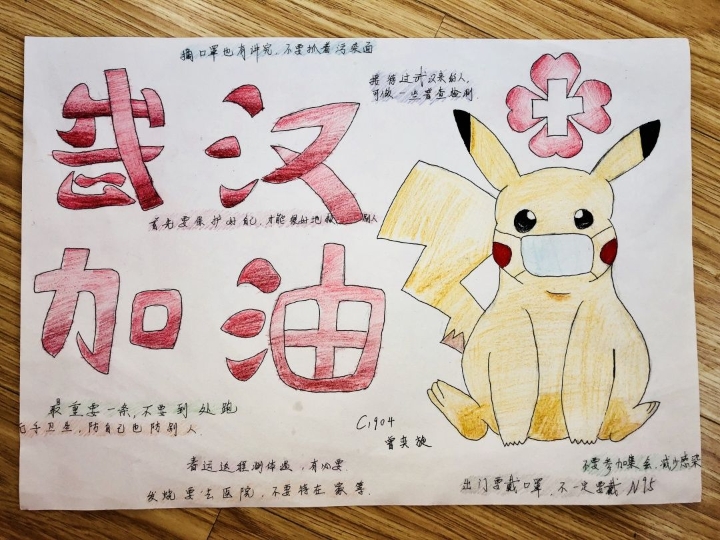 摘口罩也有讲究,不要抓着污染面
接待过武汉来的人,
可做一些普查检测
武汉
首先要保护好自己,才能更好地 别人
加油
最重要一条,不要到处跑
手卫生,防自己也防别人.
C1904
曾奕旋
春运返程测体温,有必要
发烧要去医院,不要待在家等.
不要参加集会,减少感染
出门要戴口罩,不一定要戴N95